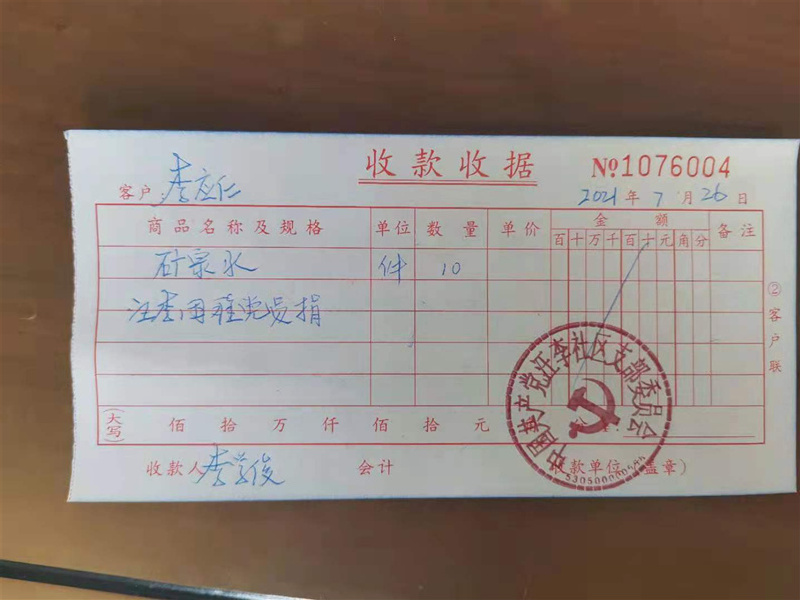 收款收据 №1076004
客户 李应仁 2021年7月26日
商品名称及规格 单位 数量 单价 金额 备注
百十万千百十元角分
矿泉水 件 10
汪李 党员捐
②客户联
(大写) 佰拾万仟佰拾元
收款人 李学俊 会计 收款单位(盖章)
中国共产党汪李社区支部委员会